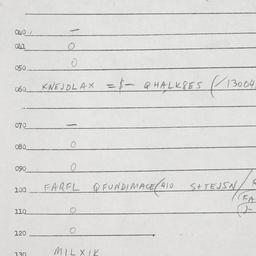 040 —
041 0
050 0
060 KNEJDLAX = $ — QHALK8ES (/13004
070 —
080 0
090 0
100 FARFL QFUNDIMACE/410 S+TEJSN/
(FA
110 0
120 0
130 MILXIK